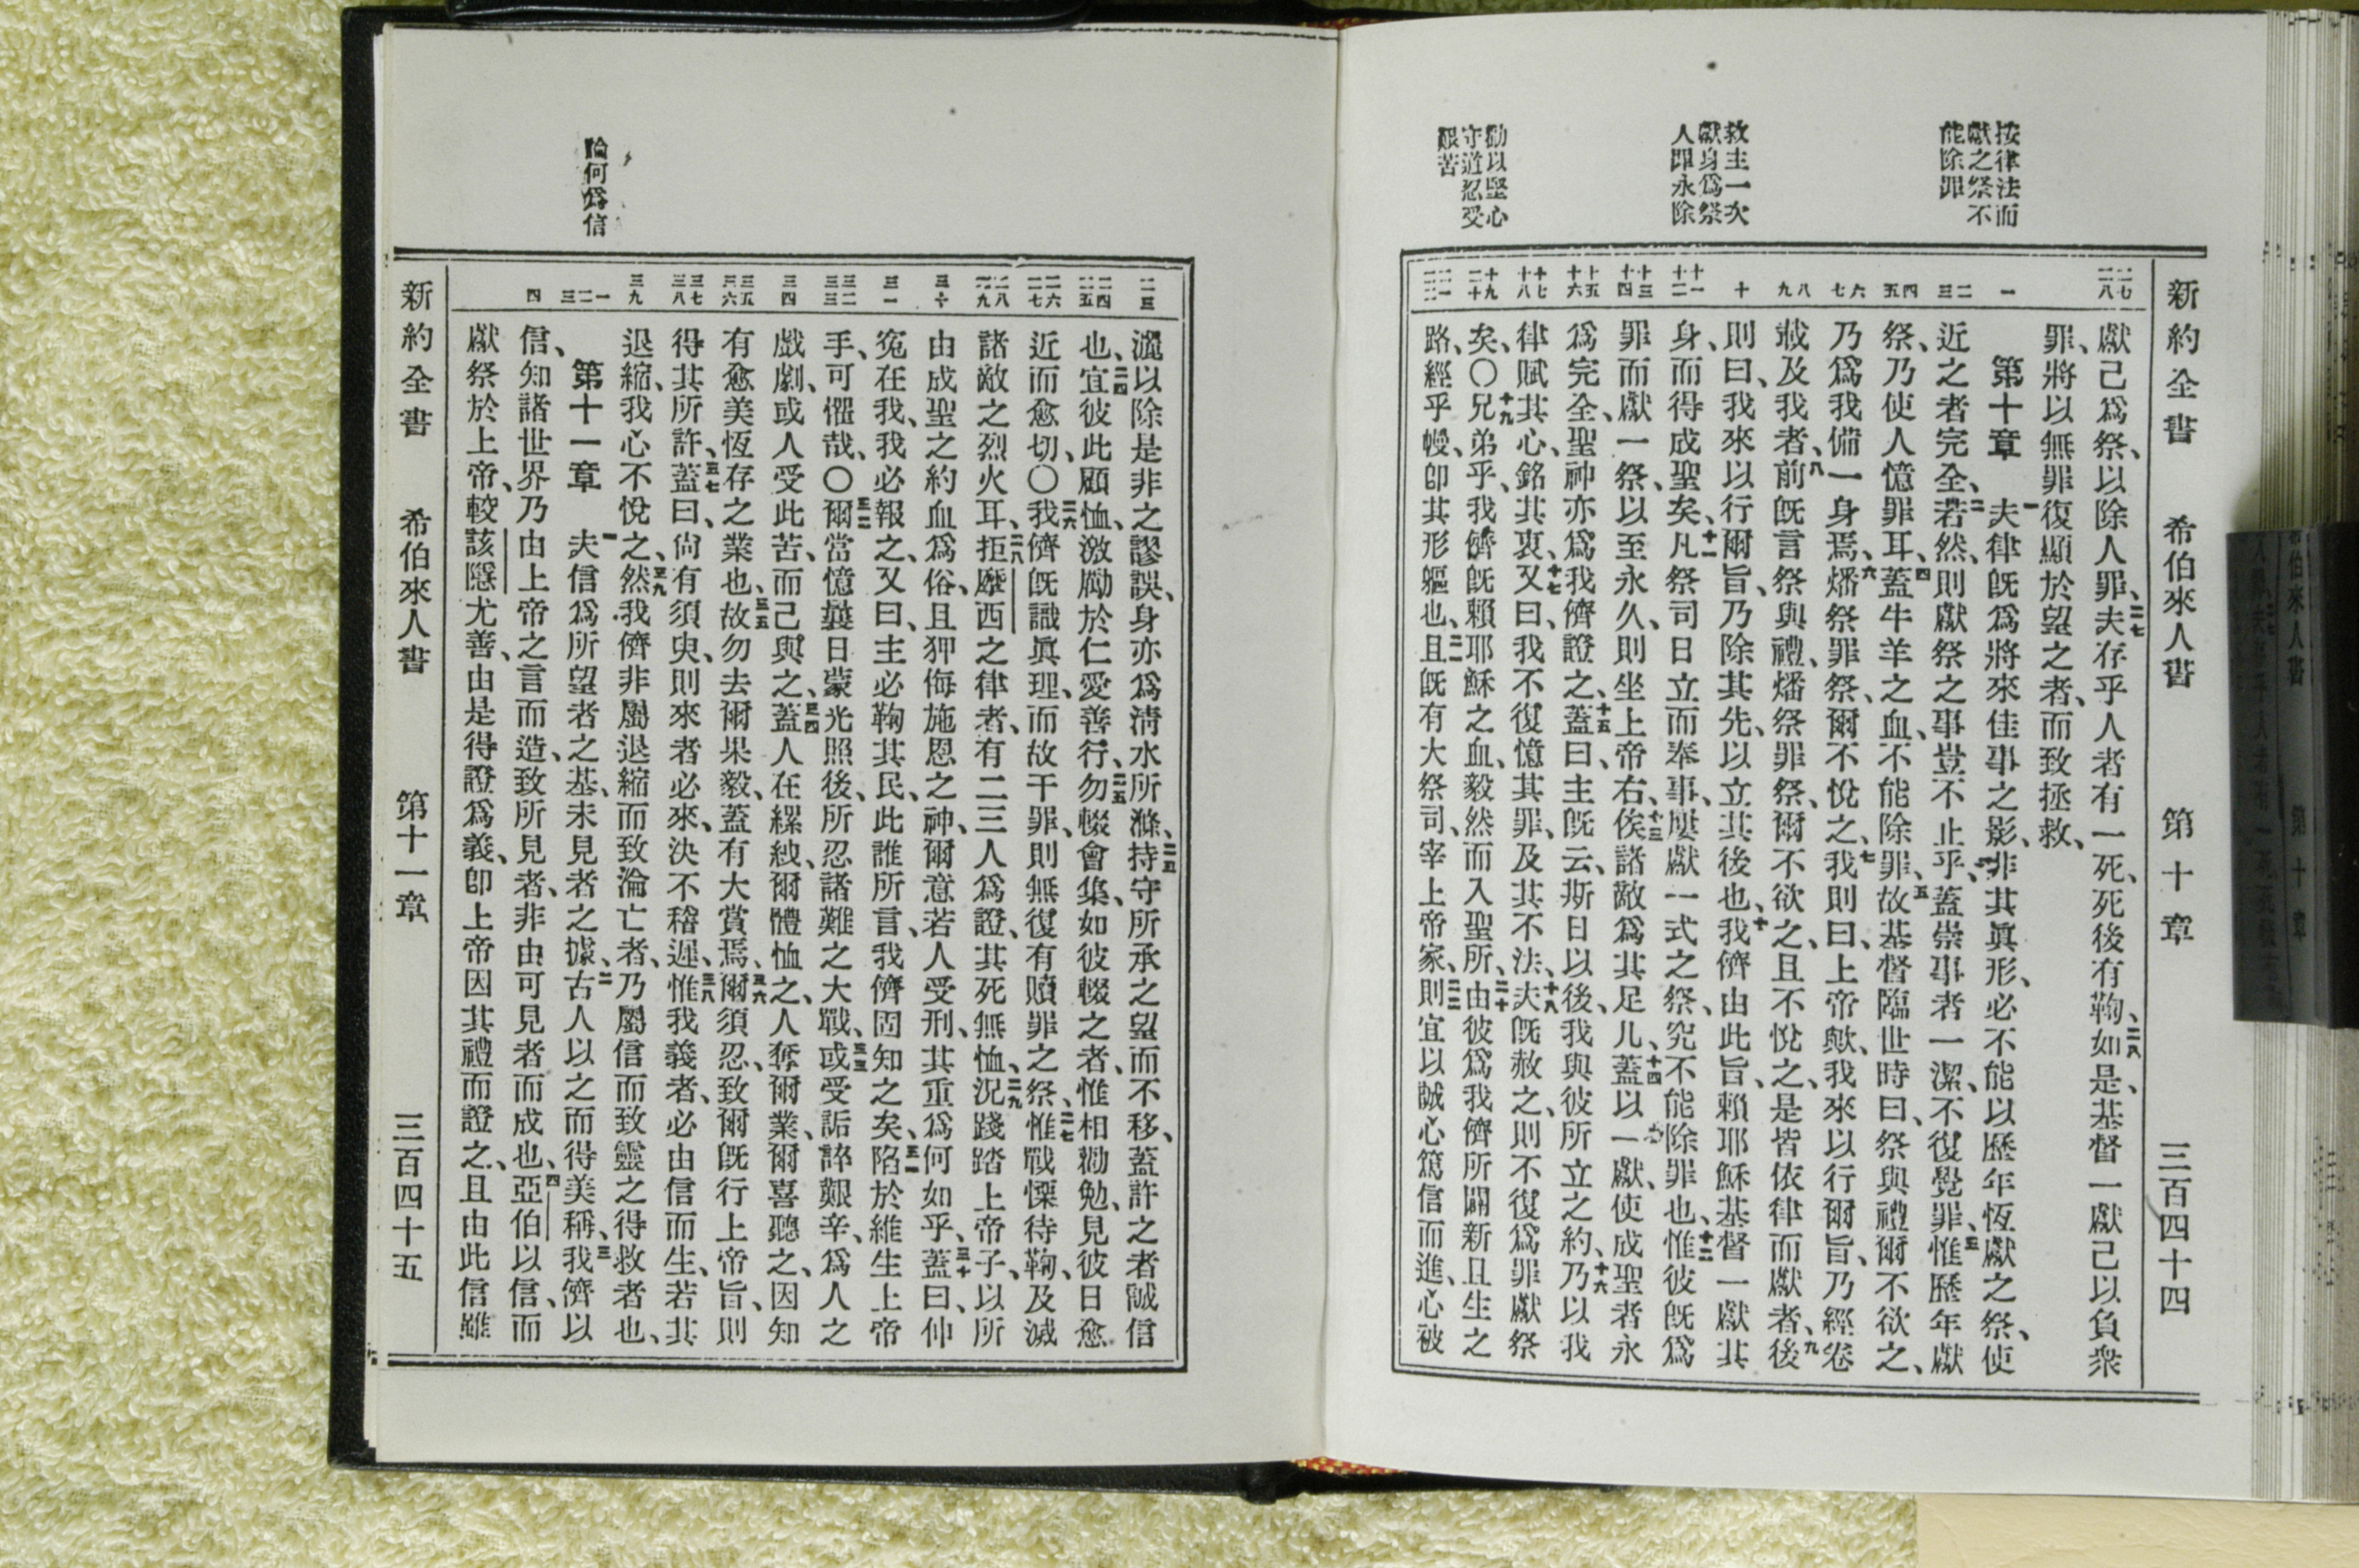 按律法而
獻之祭不
能除罪
救主一次
獻身爲祭
人卽永除
勸以堅心
守道忍受
艱苦
新約全書 希伯來人書 第十章 三百四十四
二七 二八
獻己爲祭、以除人罪、二七夫存乎人者有一死、死後有鞫、二八如是、基督一獻己以負衆
罪、將以無罪復顯於望之者、而致拯救、
一
第十章 一夫律旣爲將來佳事之影、非其眞形、必不能以歷年恆獻之祭、使
二 三
近之者完全、二若然、則獻祭之事豈不止乎、蓋崇事者一潔、不復覺罪、三惟歷年獻
四 五
祭、乃使人憶罪耳、四蓋牛羊之血、不能除罪、五故基督臨世時曰、祭與禮爾不欲之、
六 七
乃爲我備一身焉、六燔祭罪祭、爾不悅之、七我則曰、上帝歟、我來以行爾旨、乃經卷
八 九
載及我者、八前旣言祭與禮、燔祭罪祭、爾不欲之、且不悅之、是皆依律而獻者、九後
十
則曰、我來以行爾旨、乃除其先、以立其後也、十我儕由此旨、賴耶穌基督一獻其
十一 十二
身、而得成聖矣、十一凡祭司日立而奉事、屢獻一式之祭、究不能除罪也、十二惟彼旣爲
十三 十四
罪而獻一祭、以至永久、則坐上帝右、十三俟諸敵爲其足几、十四蓋以一獻、使成聖者永
十五 十六
爲完全、聖神亦爲我儕證之、十五蓋曰、主旣云、斯日以後、我與彼所立之約、十六乃以我
十七 十八
律賦其心、銘其衷、十七又曰、我不復憶其罪、及其不法、十八夫旣赦之、則不復爲罪獻祭
十九 二十
矣、〇十九兄弟乎、我儕旣賴耶穌之血、毅然而入聖所、二十由彼爲我儕所闢新且生之
二一 二二
路、經乎幔、卽其形軀也、二一且旣有大祭司、宰上帝家、二二則宜以誠心篤信而進、心被
論何爲信
二三
灑以除是非之謬誤、身亦爲淸水所滌、二三持守所承之望而不移、蓋許之者誠信
二四 二五
也、二四宜彼此顧恤、激勵於仁愛善行、二五勿輟會集、如彼輟之者、惟相勸勉、見彼日愈
二六 二七
近而愈切、〇二六我儕旣識眞理、而故干罪、則無復有贖罪之祭、二七惟戰慄待鞫、及滅
二八 二九
諸敵之烈火耳、二八拒摩西之律者、有二三人爲證、其死無恤、二九況踐踏上帝子、以所
三十
由成聖之約血爲俗、且狎侮施恩之神、爾意若人受刑、其重爲何如乎、三十蓋曰、伸
三一
寃在我、我必報之、又曰、主必鞫其民、此誰所言、我儕固知之矣、三一陷於維生上帝
三二 三三
手、可懼哉、〇三二爾當憶曩日蒙光照後、所忍諸難之大戰、三三或受詬誶艱辛、爲人之
三四
戲劇、或人受此苦、而己與之、三四蓋人在縲絏、爾體恤之、人奪爾業、爾喜聽之、因知
三五 三六
有愈美恆存之業也、三五故勿去爾果毅、蓋有大賞焉、三六爾須忍、致爾旣行上帝旨、則
三七 三八
得其所許、三七蓋曰、尙有須臾、則來者必來、決不稽遲、三八惟我義者、必由信而生、若其
三九
退縮、我心不悅之、三九然我儕非屬退縮而致淪亡者、乃屬信而致靈之得救者也、
一 二 三
第十一章 一夫信爲所望者之基、未見者之據、二古人以之而得美稱、三我儕以
四
信、知諸世界乃由上帝之言而造、致所見者、非由可見者而成也、四亞伯以信、而
獻祭於上帝、較該隱尤善、由是得證爲義、卽上帝因其禮而證之、且由此信雖
新約全書 希伯來人書 第十一章 三百四十五